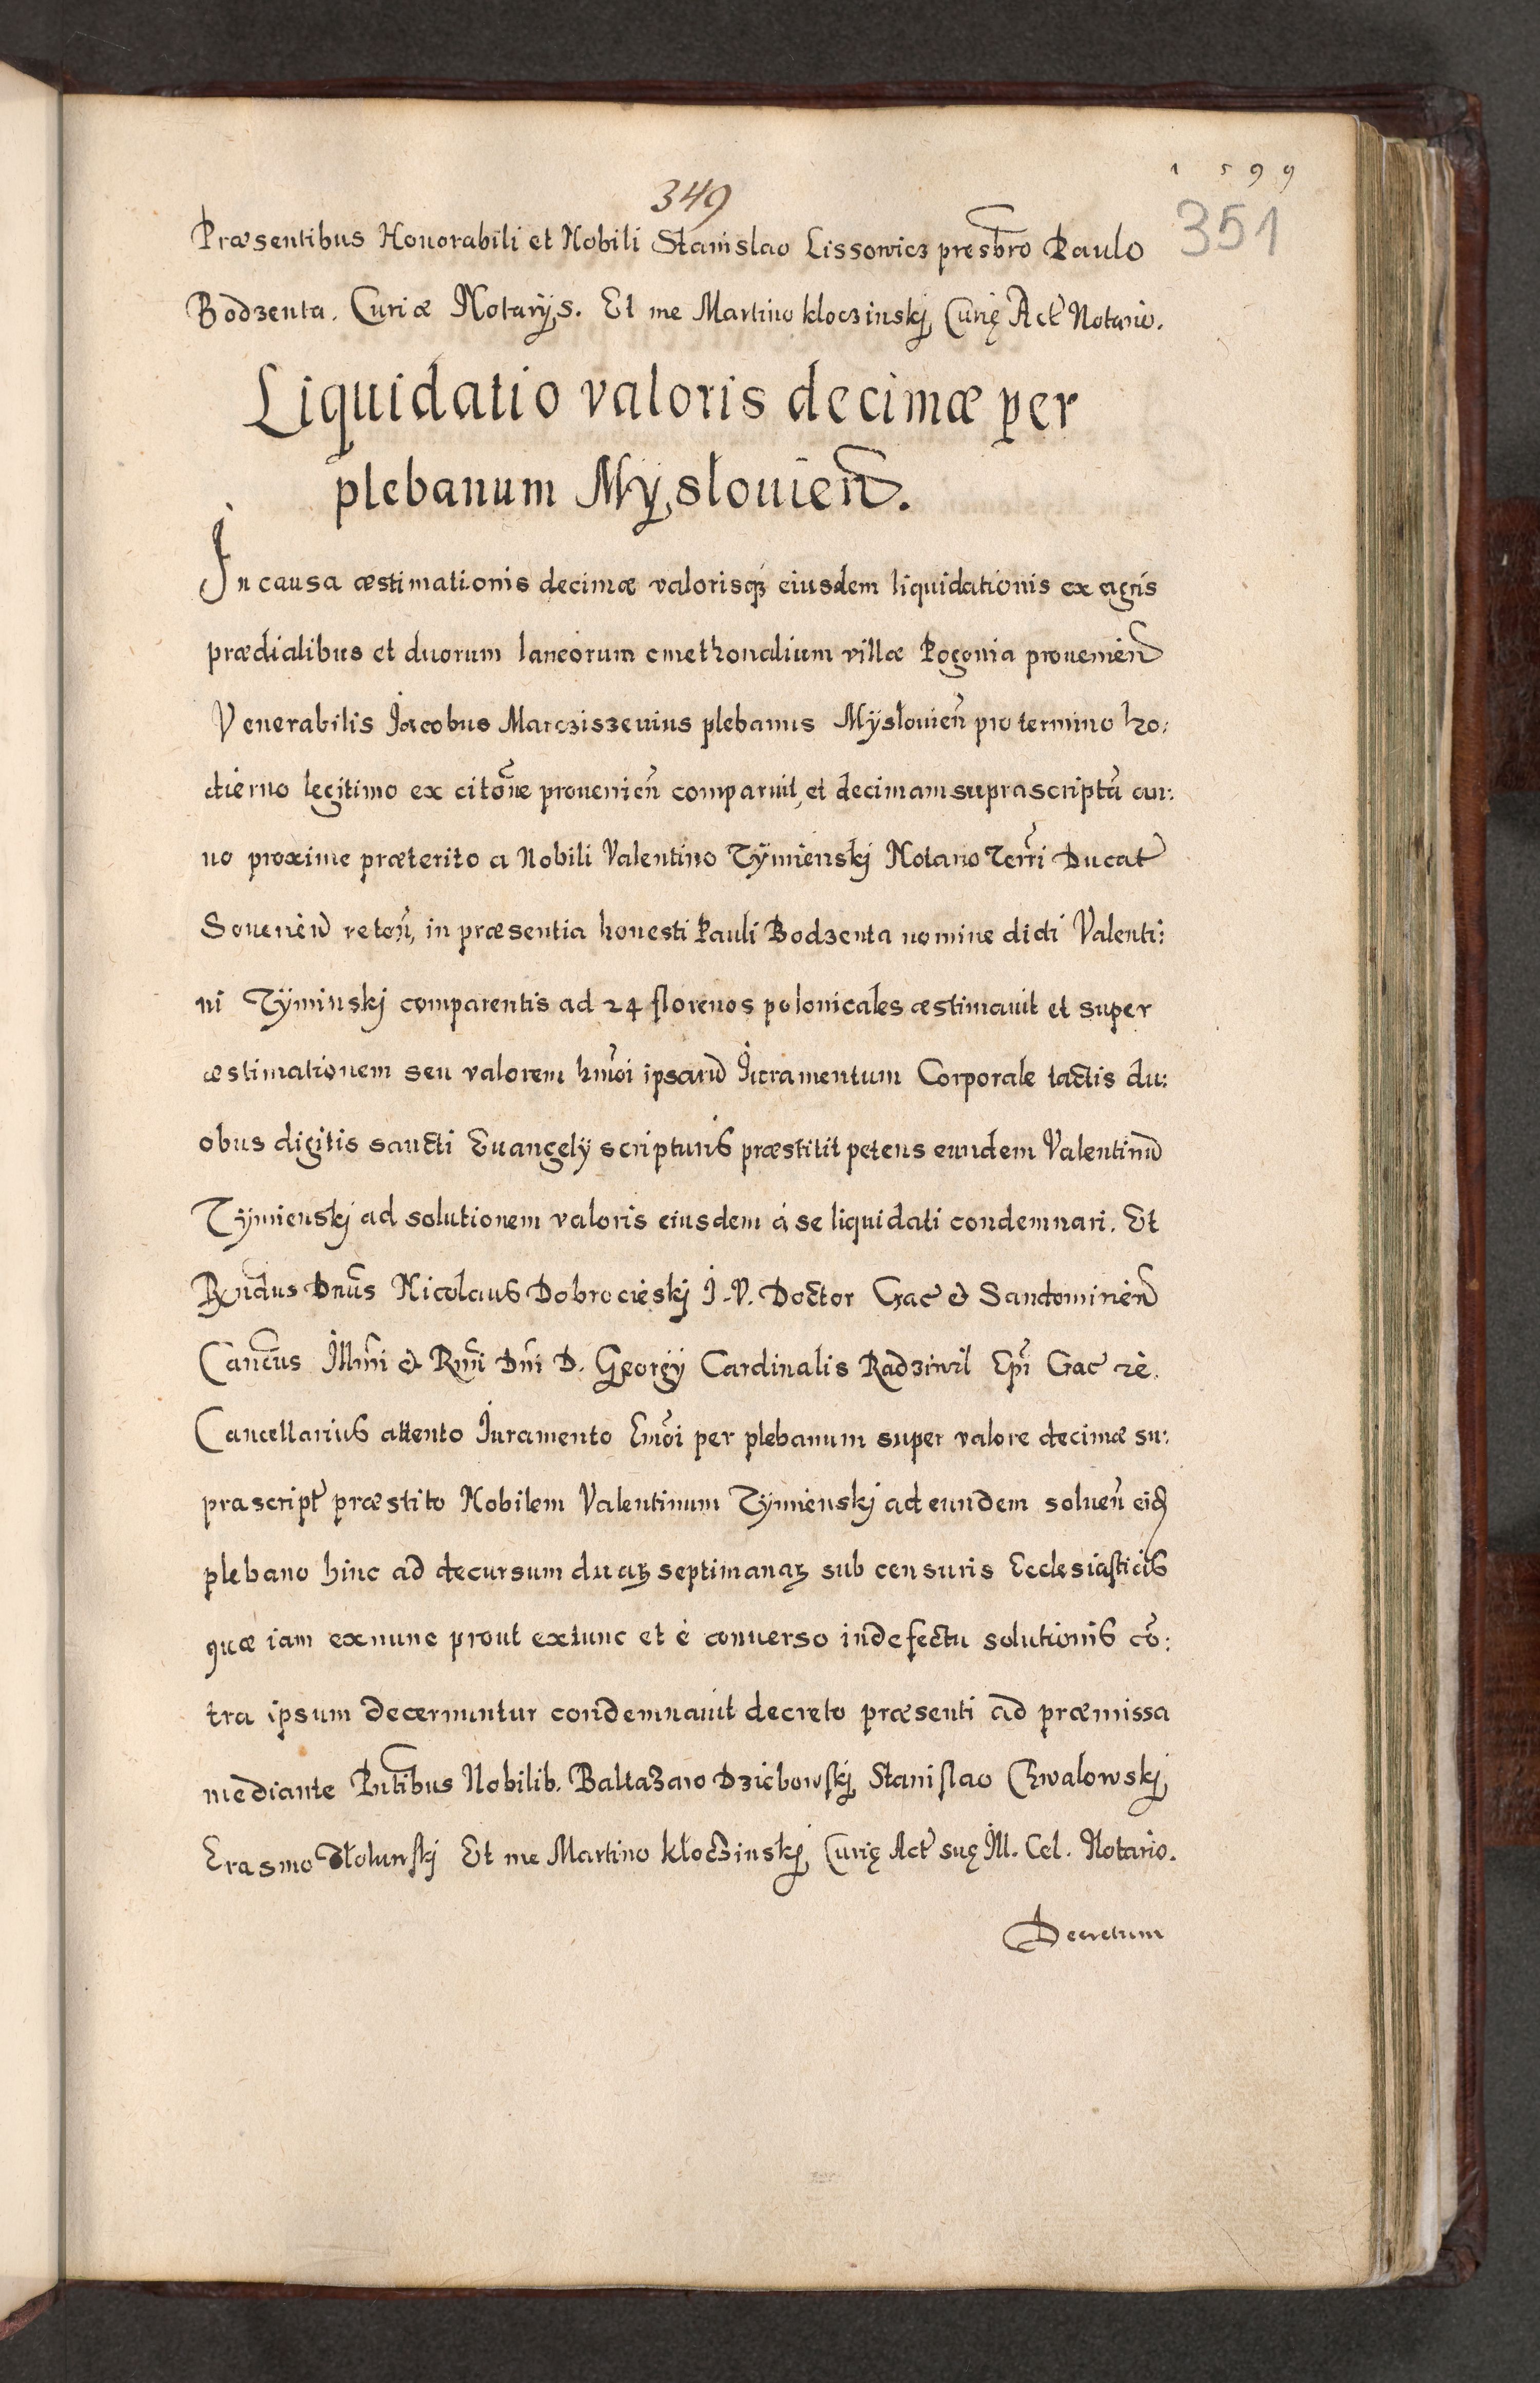 1 5 9 9
349
351
Præsentibus Honorabili et Nobili Stanislao Lissowicz presbr̃o Paulo
Bodzenta. Curiæ Notarÿs. Et me Martino kloczinskj Curię Act Notario.
Liquidatio valoris decimæ per
plebanum Mysłouien̄.
In causa æstimationis decimæ valorisqȝ eiusdem liquidationis ex agris
prædialibus et duorum laneorum cmethonalium villæ Pogonia prouenien̄
Venerabilis Jacobus Marcziszeuius plebanus Mÿsłouien̄ pro termino ho:
dierno legitimo ex citōne prouenien̄ comparuit, et decimam suprascriptā an:
no proxime præterito a Nobili Valentino Tÿmienskj Notario Terrī Ducat
Seuerien̄ retēn, in præsentia honesti Pauli Bodzenta nomine dicti Valenti:
ni Tÿminskj comparentis ad 24 florenos polonicales æstimauit et super
æstimationem seu valorem hmōi ipsarū Juramentum Corporale tactis du:
obus digitis sancti Euangelÿ scripturis præstitit petens eundem Valentinū
Tÿmienskj ad solutionem valoris eiusdem á se liquidati condemnari. Et
Rṽndus Dnūs Nicolaus Dobrocieskj J. V. Doctor Crac & Sandomirien̄
Canc̄us Illmī & Rmī Dnī D. Georgÿ Cardinalis Radziwil Epī Crac ꝛc.
Cancellarius attento Juramento hmōi per plebanum super valore decimæ su:
prascript præstito Nobilem Valentinum Tÿmienskj ad eundem soluen̄ eid
plebano hinc ad decursum duaꝝ septimanaꝝ sub censuris Ecclesiasticis
quæ iam exnunc prout extunc et è conuerso in defectu solutionis cō:
tra ipsum decernuntur condemnauit decreto præsenti ad præmissa
mediante Pntībus Nobilib. Baltazaro Dziebowskj, Stanislao Chwalowskj,
Erasmo Dłotunskj Et me Martino kłoczinskj, Curię Act suę Ill. Cel. Notario.
Decretum